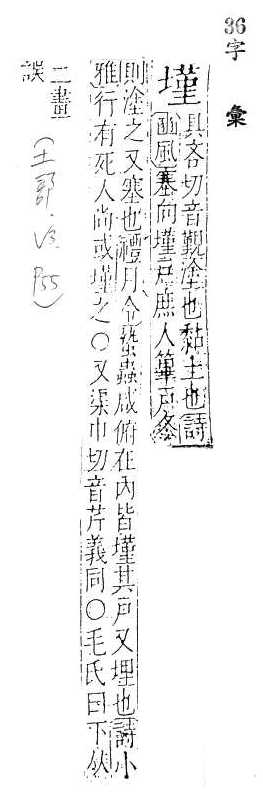 36
字彙
墐
具吝切音覲塗也黏土也詩
豳風塞向墐戶庶人篳戶冬
則塗之又塞也禮月令蟄蟲咸俯在內皆墐其戶又埋也詩小
雅行有死人尚或墐之○又渠巾切音芹義同○毛氏曰下从
二畫
誤
P55